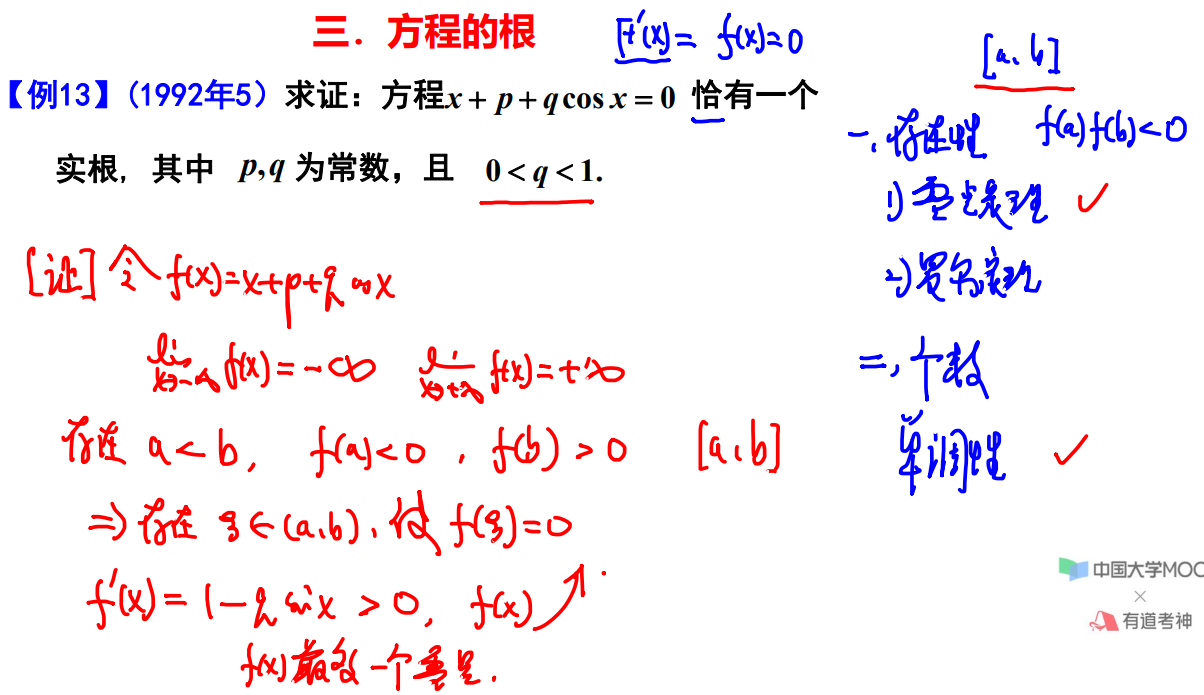 三. 方程的根
F'(x) = f(x) = 0
【例13】(1992年5) 求证：方程 x + p + q cos x = 0 恰有一个
实根, 其中 p, q 为常数，且 0 < q < 1.
[证] 令 f(x) = x + p + q cos x
lim x→-∞ f(x) = -∞  lim x→+∞ f(x) = +∞
存在 a < b, f(a) < 0, f(b) > 0  [a, b]
⇒ 存在 ξ ∈ (a, b), 使 f(ξ) = 0
f'(x) = 1 - q sin x > 0, f(x) ↗.
f(x) 最多一个零点.
[a, b]
一, 存在性  f(a) f(b) < 0
1) 零点定理 ✓
2) 罗尔定理
二, 个数
单调性 ✓
中国大学MOO
×
有道考神